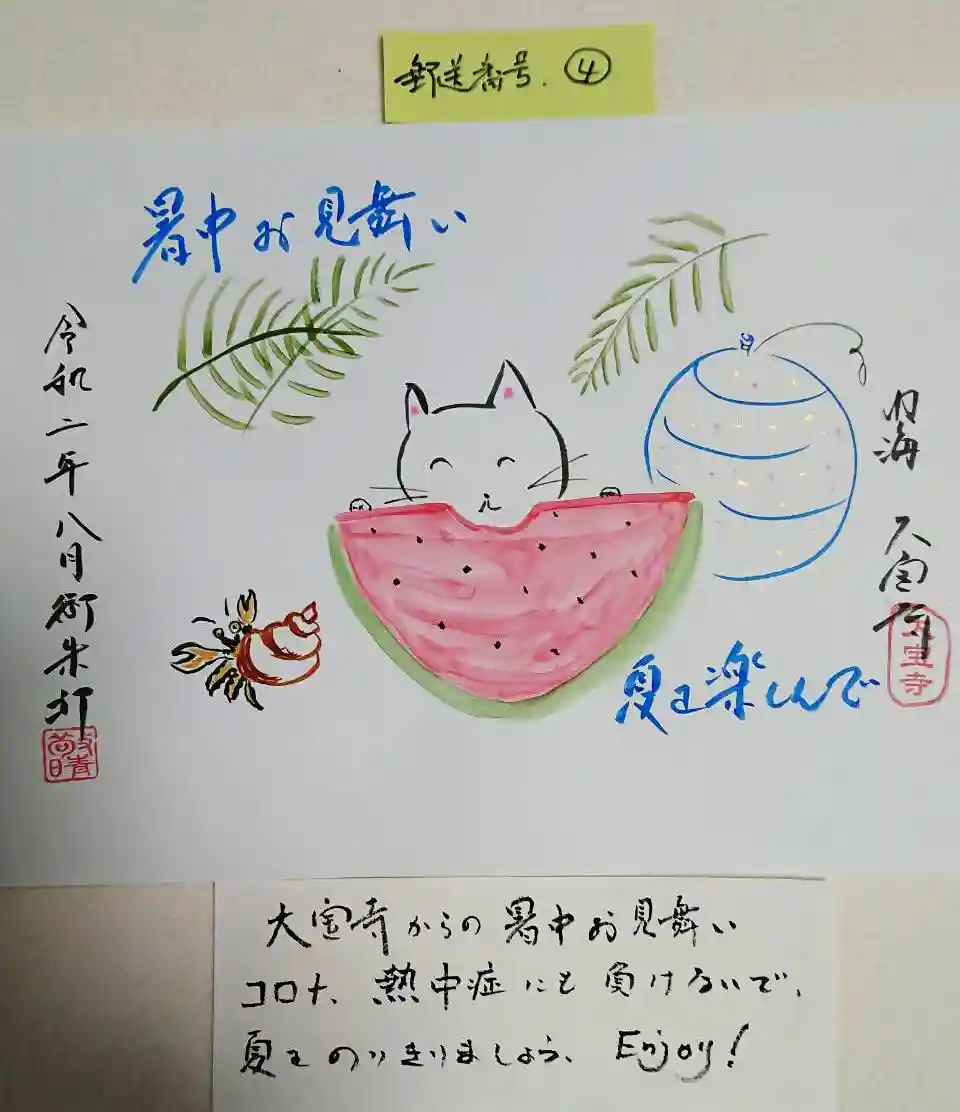 郵送番号.④
暑中お見舞い
令和二年八月御朱印
内海 大宝寺
大宝寺
夏を楽しんで
大宝寺からの暑中お見舞い
コロナ、熱中症にも負けないで、
夏をのりきりましょう、Enjoy!